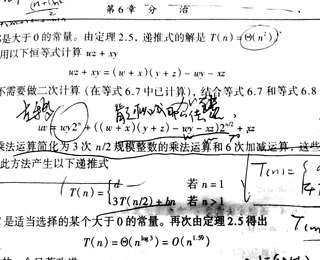 第 6 章 分 治
都是大于 0 的常量。由定理 2.5，递推式的解是 T(n)=Θ(n²)
用以下恒等式计算 wz + xy
wz + xy = (w + x)(y + z) − wy − xz
不需要做二次计算（在等式 6.7 中已计算），结合等式 6.7 和等式 6.8
uv = wy2ⁿ + ((w + x)(y + z) − wy − xz)2^{n/2} + xz
乘法运算简化为 3 次 n/2 规模整数的乘法运算和 6 次加减运算，这些
此方法产生以下递推式
T(n) = { d 若 n = 1
3T(n/2) + bn 若 n > 1
T(n) = {
是适当选择的某个大于 0 的常量。再次由定理 2.5 得出
T(n) = Θ(n^{log 3}) = O(n^{1.59})